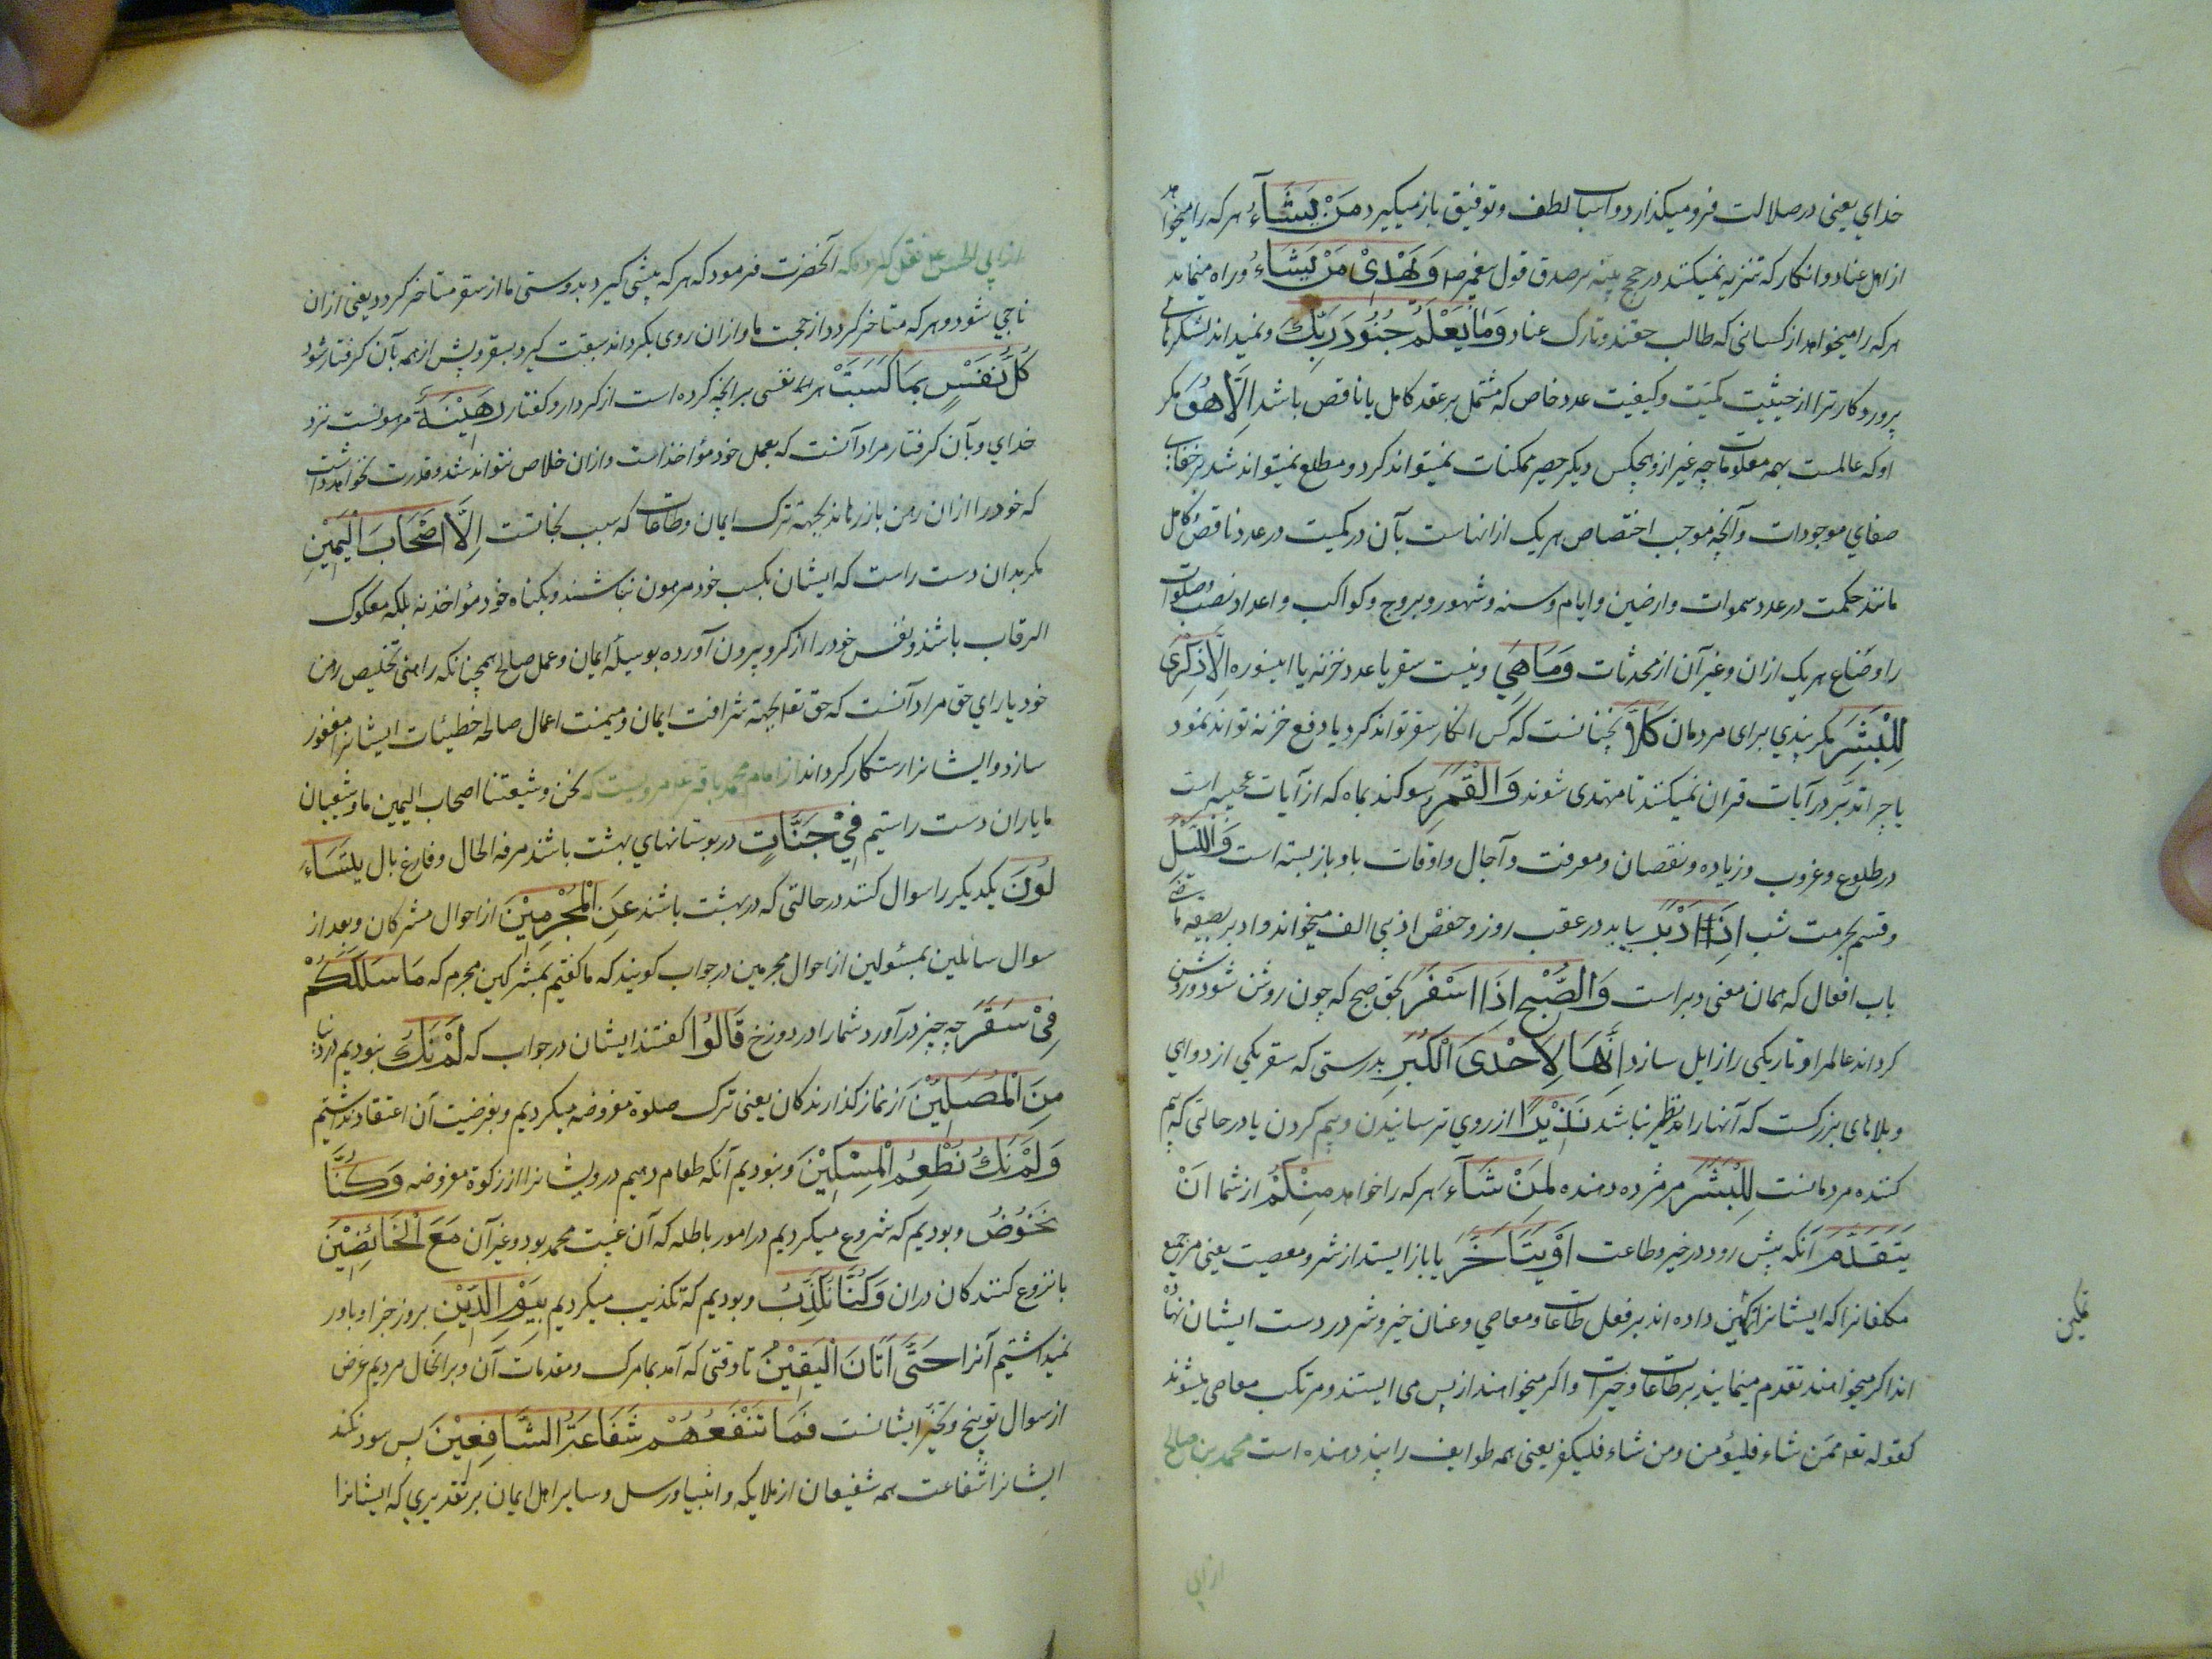 خدای یعنی در ضلالت فرو میکذارد و اسباب لطف و توفیق باز میکیرد مَنْ یَشَآءُ هر که را میخواهد
از اهل عناد و انکار که تنزیه نمیکنند در حجج بینه بر صدق قول پیغمبر ص وَیَهْدِیْ مَنْ یَشَاءُ و راه مینماید
هر که را میخواهد از کسانی که طالب حقند و تارک عناد وَمَا یَعْلَمُ جُنُوْدَ رَبِّكَ و نمیداند لشکرهای
پروردکار ترا از حیثیت کمیت و کیفیت عدد خاص که مشتمل بر عقد کامل یا ناقص باشد اِلَّا هُوَ مکر
او که عالمست بهمه معلومات چه غیر از و هیچکس دیکر حصر ممکنات نمیتواند کرد و مطلع نمیتواند شد بر خفایا
صفای موجودات و آنچه موجب اختصاص هر یک از انهاست بآن در کمیت در عدد ناقص و کامل
مانند حکمت در عدد سموات و ارضین و ایام و سنه و شهور و بروج و کواکب و اعداد نصب و صلوات
را و ضاع هر یک ازان و غیر آن از محدثات وَمَا هِیَ و نیست سقر یا عدد خزنه یا اینسوره اِلَّا ذِکْرٰی
لِلْبَشَرِ مکر پندی برای مردمان کَلَّا نچنانست که کس انکار سقر تواند کرد یا دفع خزنه تواند نمود
یا چرا تدبر در آیات قران نمیکنند تا مهتدی شوند وَالْقَمَرِ سوکند بماه که از آیات عجیبه است
در طلوع و غروب و زیاده و نقصان و معرفت و آجال و اوقات باو باز بسته است وَاللَّیْلِ
و قسم بحرمت شب اِذَا اَدْبَرَ بیاید در عقب روز و حفص اذ بی الف میخواند و ادبر بصیغه ماضی
باب افعال که همان معنی دبر است وَالصُّبْحِ اِذَا اَسْفَرَ بحق صبح که چون روشن شود و روشن
کرداند عالم را و تاریکی را زایل سازد اِنَّهَا لَاِحْدَی الْکُبَرِ بدرستی که سقر یکی از دواهی
و بلاهای بزرکست که آنها را نظیر نباشد نَذِیْرًا از روی ترسانیدن و بیم کردن یا در حالتی که بیم
کننده مردمانست لِلْبَشَرِ مر مژده دهنده لِمَنْ شَآءَ هر که را خواهد مِنْکُمْ از شما اَنْ
یَتَقَدَّمَ آنکه پیش رود در خیر و طاعت اَوْ یَتَاَخَّرَ یا باز ایستد از شر و معصیت یعنی مر جمیع
مکلفانرا که ایشانرا تمکین داده اند بر فعل طاعات و معاصی و عنان خیر و شر در دست ایشان نهاده
اند اکر میخواهند تقدم مینمایند بر طاعات و خیرات و اکر میخواهند از پس می ایستند و مرتکب معاصی میشوند
کقوله تعا فمن شاء فلیؤمن ومن شاء فلیکفر یعنی همه طوایف را پند دهنده است محمد بن صالح
تمکین
از ابی
از ابی الحسن ع نقل کرده که آنحضرت فرمود که هر که پیشی کیرد بدوستی ما از سقر متاخر کردد یعنی ازان
ناجی شود و هر که متاخر کردد از حجت ما و ازان روی بکرداند سبقت کیرد بسقر و پیش از همه بآن کرفتار شود
کُلُّ نَفْسٍ بِمَا کَسَبَتْ هر نفسی برانچه کرده است از کردار و کفتار رَهِیْنَةٌ مرهونست نزد
خدای و بآن کرفتار مراد آنست که بعمل خود مؤاخذاست و ازان خلاص نتواند شد و قدرت نخواهد داشت
که خود را ازان رهن باز رهاند بجهة ترک ایمان و طاعات که سبب نجاتست اِلَّا اَصْحَابَ الْیَمِیْنِ
مکر یاران دست راست که ایشان بکسب خود مرهون نباشند و بکناه خود مؤاخذ نه بلکه مفکوک
الرقاب باشند و نفس خود را از کرو بیرون آورده بوسیله ایمان و عمل صالح همچنانکه راهن تخلیص رهن
خود یا رای حق مراد آنست که حق تعا بجهة شرافت ایمان و میمنت اعمال صالحه خطیئات ایشانرا مغفور
سازد و ایشانرا رستکار کرداند از امام محمد باقر ع مرویست که نحن وشیعتنا اصحاب الیمین ما و شیعیان
ما یاران دست راستیم فِیْ جَنَّاتٍ در بوستانهای بهشت باشند مرفه الحال و فارغ بال یَتَسَاءَ
لُوْنَ یکدیکر را سوال کنند در حالتی که در بهشت باشند عَنِ الْمُجْرِمِیْنَ از احوال مشرکان و بعد از
سوال سائلین بمسئولین از احوال مجرمین در جواب کویند که ما کفتیم بمشرکین مجرم که مَا سَلَکَکُمْ
فِیْ سَقَرَ چه چیز در آورد شما را در دوزخ قَالُوْا کفتند ایشان در جواب که لَمْ نَكُ نبودیم در دنیا
مِنَ الْمُصَلِّیْنَ از نماز کذارندکان یعنی ترک صلوة مفروضه میکردیم و بفرضیت آن اعتقاد نداشتیم
وَلَمْ نَكُ نُطْعِمُ الْمِسْکِیْنَ و نبودیم آنکه طعام دهیم درویشانرا از زکوة مفروضه وَکُنَّا
نَخُوْضُ و بودیم که شروع میکردیم در امور باطله که آن غیبت محمد بود و غیر آن مَعَ الْخَائِضِیْنَ
با شروع کنندکان دران وَکُنَّا نُکَذِّبُ و بودیم که تکذیب میکردیم بِیَوْمِ الدِّیْنِ بروز جزا و باور
نمیداشتیم آنرا حَتّٰی اَتَانَا الْیَقِیْنُ تا وقتی که آمد بما مرک و مقدمات آن و بر آنحال مردیم غرض
از سوال توبیخ و تحیر ایشانست فَمَا تَنْفَعُهُمْ شَفَاعَةُ الشَّافِعِیْنَ پس سود نکند
ایشانرا شفاعت همه شفیعان از ملایکه و انبیا و رسل و سایر اهل ایمان بر تقدیری که ایشانرا